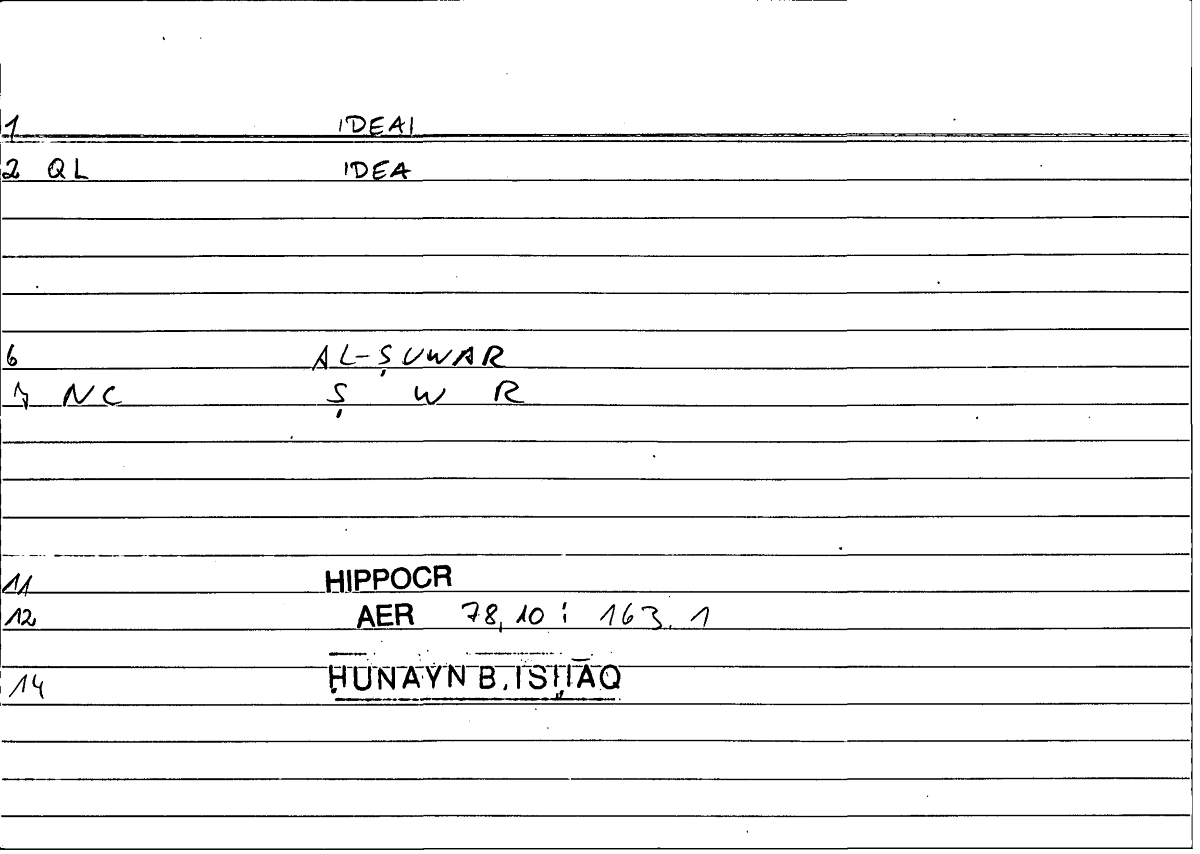 1 IDEAI
2 QL IDEA
6 AL-ṢUWAR
7 NC Ṣ W R
11 HIPPOCR
12 AER 78,10 : 163.1
14 ḤUNAYN B. ISḤĀQ